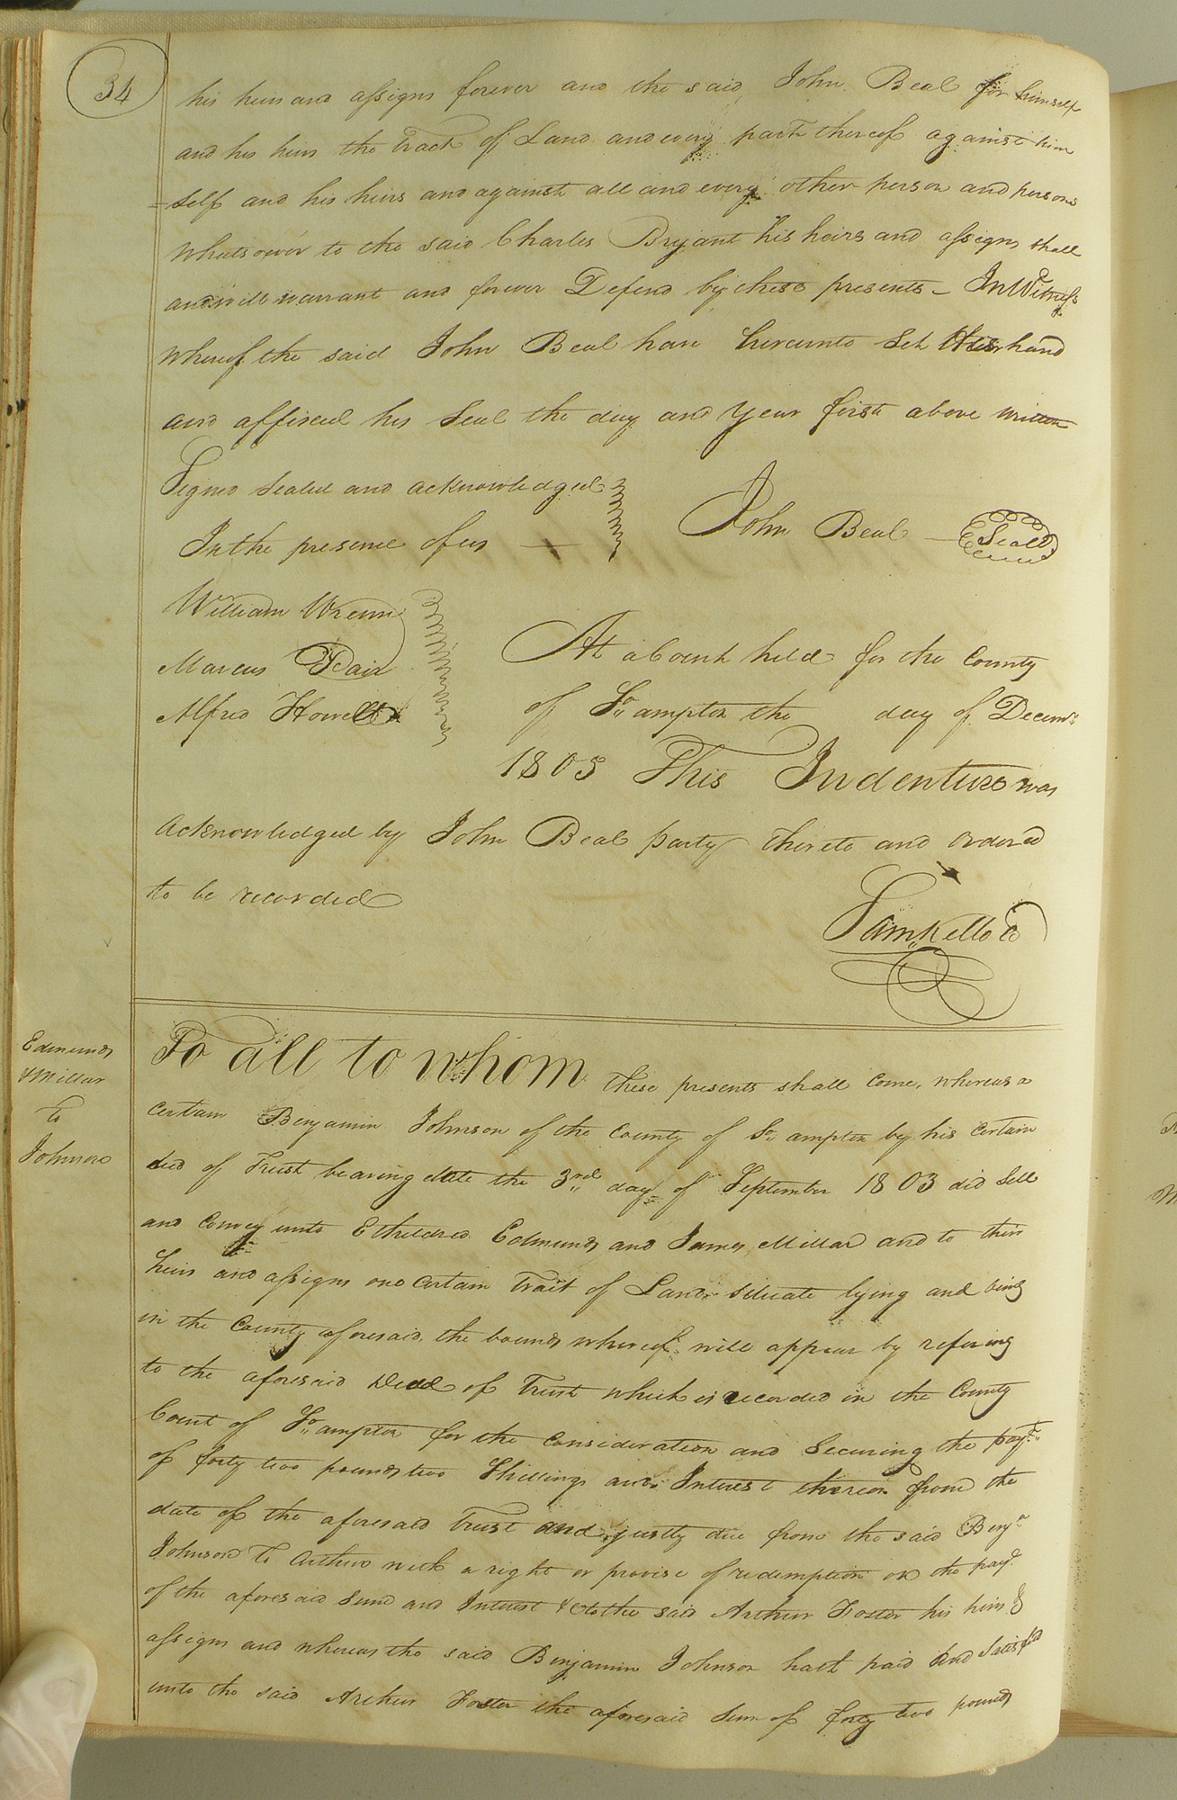 34
his heirs and assigns forever and the said John Beal for himself
and his heirs the tract of Land and every part thereof against him
=self and his heirs and against all and every other person and persons
Whatsoever to the said Charles Bryant his heirs and assigns shall
and will warrant and forever Defend by these presents - In Witness
Whereof the said John Beal have hereunto Set his hand
and affixed his Seal the day and Year first above written
Signed Sealed and acknowledged
In the presence of us — John Beal — Seal
William Wrenn
Marcus Dair
Alfred Howell
At a Court held for the County
of So,,ampton the day of Decem.r
1805 This Indenture was
Acknowledged by John Beal party thereto and ordered
to be recorded
Sam,, Kello C
Edmunds
& Millar
to
Johnson
To all to whom these presents shall come, whereas a
certain Benjamin Johnson of the County of So,,ampton by his certain
deed of Trust bearing date the 3rd,, day of September 1803 did Sell
and Convey unto Etheldred Edmunds and James Millar and to their
heirs and assigns one certain Trait of Land situate lying and being
in the County aforesaid, the bounds whereof will appear by refering
to the aforesaid Deed of Trust which is recorded in the County
Court of So,,ampton for the Consideration and Securing the pay.t
of forty two pounds two Shillings and Interest thereon from the
date of the aforesaid Trust and justly due from the said Benj.n
Johnson To Arthur with a right or proviso of redemption on the pay.t
of the aforesaid Sum and Interest &c to the said Arthur Foster his heirs &
assigns and whereas the said Benjamin Johnson hath paid and Satisfied
unto the said Arthur Foster the aforesaid Sum of forty two pounds